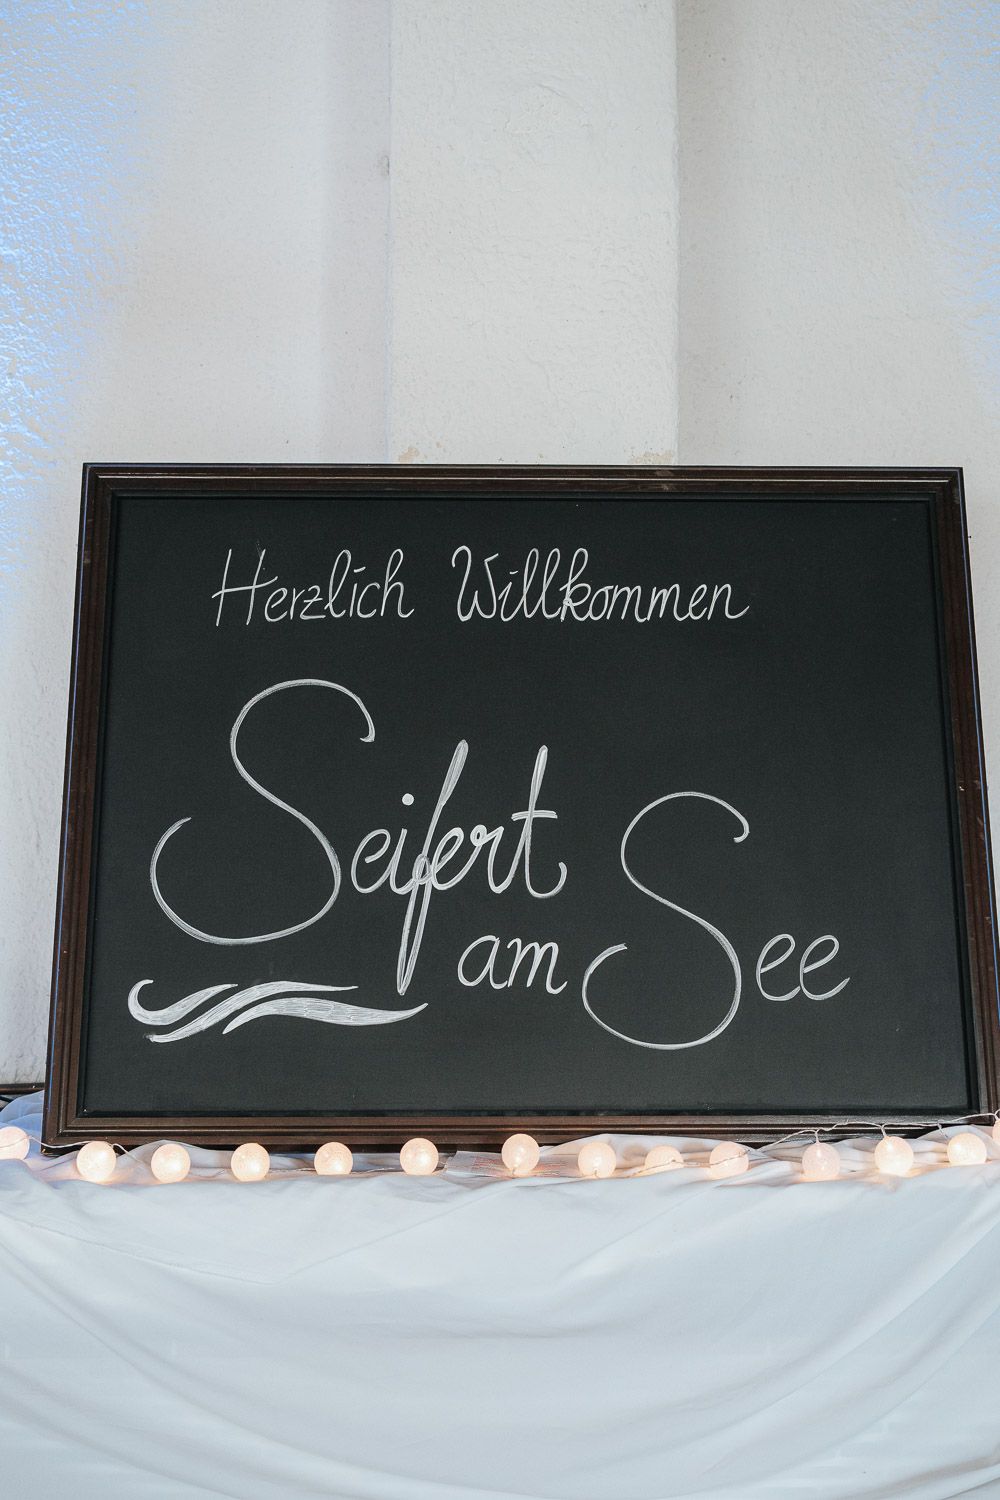 Herzlich Willkommen
Seifert
am See